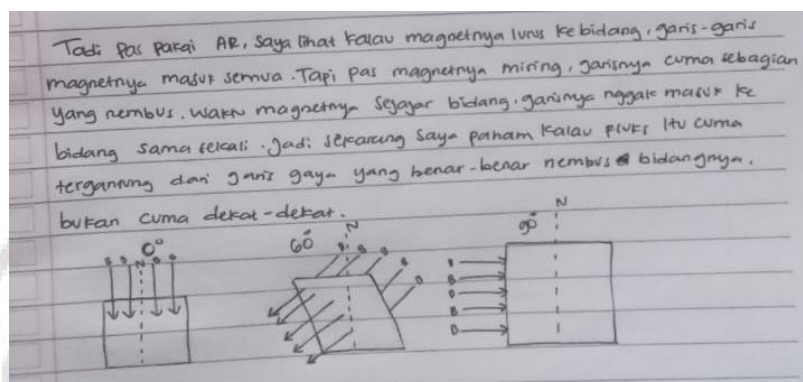 Tadi pas pakai AR, saya lihat kalau magnetnya lurus ke bidang, garis-garis
magnetnya masuk semua. Tapi pas magnetnya miring, garisnya cuma sebagian
yang nembus. Waktu magnetnya sejajar bidang, garisnya nggak masuk ke
bidang sama sekali. Jadi sekarang saya paham kalau fluks itu cuma
tergantung dari garis gaya yang benar-benar nembus bidangnya,
bukan cuma dekat-dekat.
0° 60° N 90° N
B B N B B
B B B B B
B
B
B
B
B